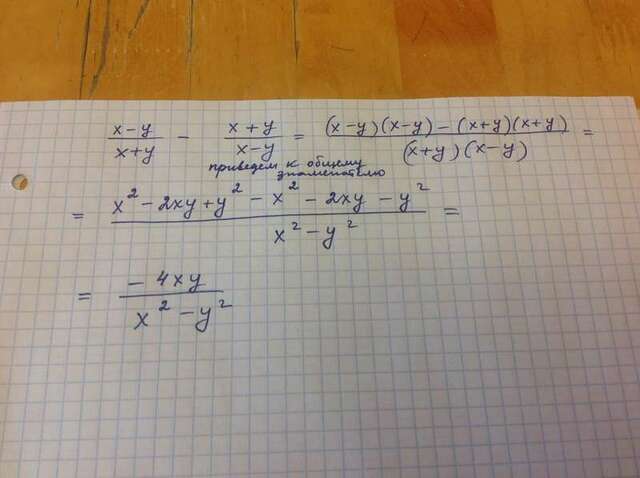 x-y/x+y - x+y/x-y = (x-y)(x-y)-(x+y)(x+y)/(x+y)(x-y) =
приведем к общему
знаменателю
= x²-2xy+y²-x²-2xy-y²/x²-y² =
= -4xy/x²-y²